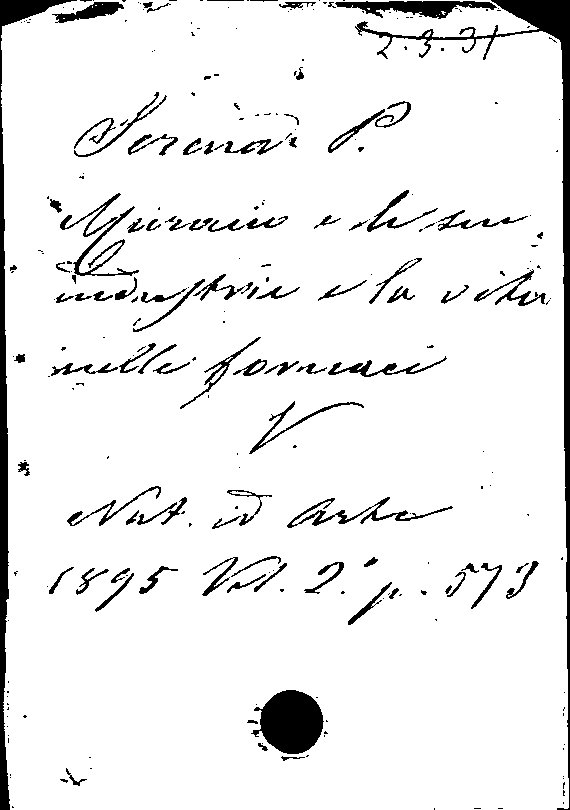 2.3.31
Serena P.
Murano e le sue
industrie e la vita
nelle fornaci
V.
Nat. ed Arte
1895 Vol. 2.° p. 573